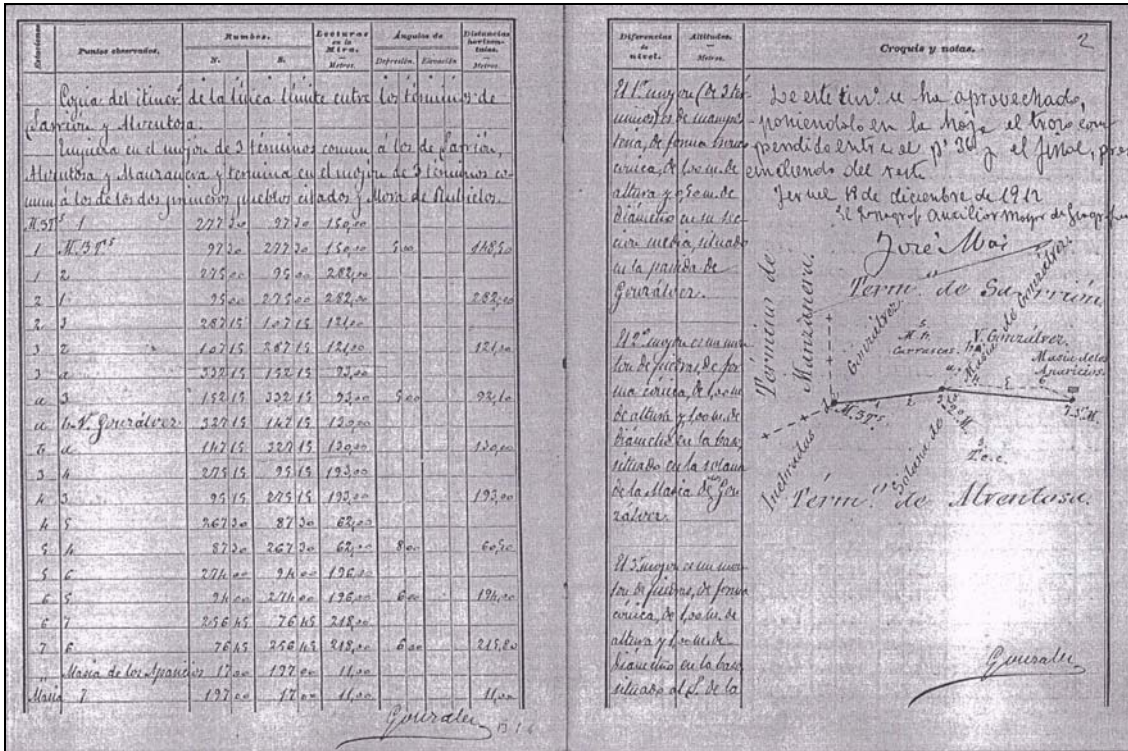 Estaciones
Puntos observados.
Rumbos.
N.
S.
Lecturas en la Mira.
Metros.
Ángulos de
Depresión. Elevación
Distancias horizontales.
Metros.
Copia del itiner.º de la línea límite entre los términos de
Sarrión y Alventosa.
Empieza en el mojon de 3 términos comun a los de Sarrión,
Alventosa y Manzanera y termina en el mojon de 3 términos co-
mun á los de los dos primeros pueblos citados y Mora de Rubielos.
M.3T.s 1 277 30 97 30 150,00
1 M.3T.s 97 30 277 30 150,00 148,50
1 2 275 00 95 00 282,00
2 1 95 00 275 00 282,00 282,00
2 3 287 15 107 15 121,00
3 2 107 15 287 15 121,00 121,00
3 a 332 15 152 15 93,00
a 3 152 15 332 15 93,00 5 00
a b. V. Gonzálvez 327 15 147 15 130,00
b a 147 15 327 15 130,00 130,00
3 4 275 15 95 15 193,00
4 3 95 15 275 15 193,00 193,00
4 5 267 30 87 30 62,00
5 4 87 30 267 30 62,00 8 00
5 6 274 00 94 00 196,00
6 5 94 00 274 00 196,00 6 00 194,00
6 7 256 45 76 45 218,00
7 6 76 45 256 45 218,00 6 00 215,80
Masia de los Aparicios 17 00 197 00 11,00
Masia 7 197 00 17 00 11,00 11,00
Gonzalez
Diferencias de nivel.
Altitudes.
Metros.
Croquis y notas.
2
El 1.er mojon (de 3 tér-
minos) es de mampos-
tería, de forma tronco
cónica, de 1,00 m. de
altura y 0,50 m. de
diámetro en su sec-
cion media, situado
en la partida de
Gonzálvez.
El 2.º mojon es un mon-
ton de piedras, de for-
ma cónica, de 1,00 m.
de altura y 1,00 m. de
diámetro en la base,
situado en la solana
de la Masia de Gon-
zálvez.
El 3.er mojon es un mon-
ton de piedras, de forma
cónica, de 1,00 m. de
altura y 1,00 m. de
diámetro en la base
situado al S. de la
De este itin.º se ha aprovechado,
poniendolo en la hoja el trozo com-
prendido entre el p.º 36 y el final, pres-
cindiendo del resto.
Teruel 18 de diciembre de 1912
El Topograf. Auxiliar mayor de Geografía
José Mai
Término de
Manzanera.
Térm.º de Sarrión
Gonzálvez
M. h.
Carrascas.
V. Gonzálvez.
Masia de Gonzálvez.
Masia de los
Aparicios.
M. 3T.s
2.º M.
3.er M.
Solana de
Térm.º de Alventosa.
Gonzalez